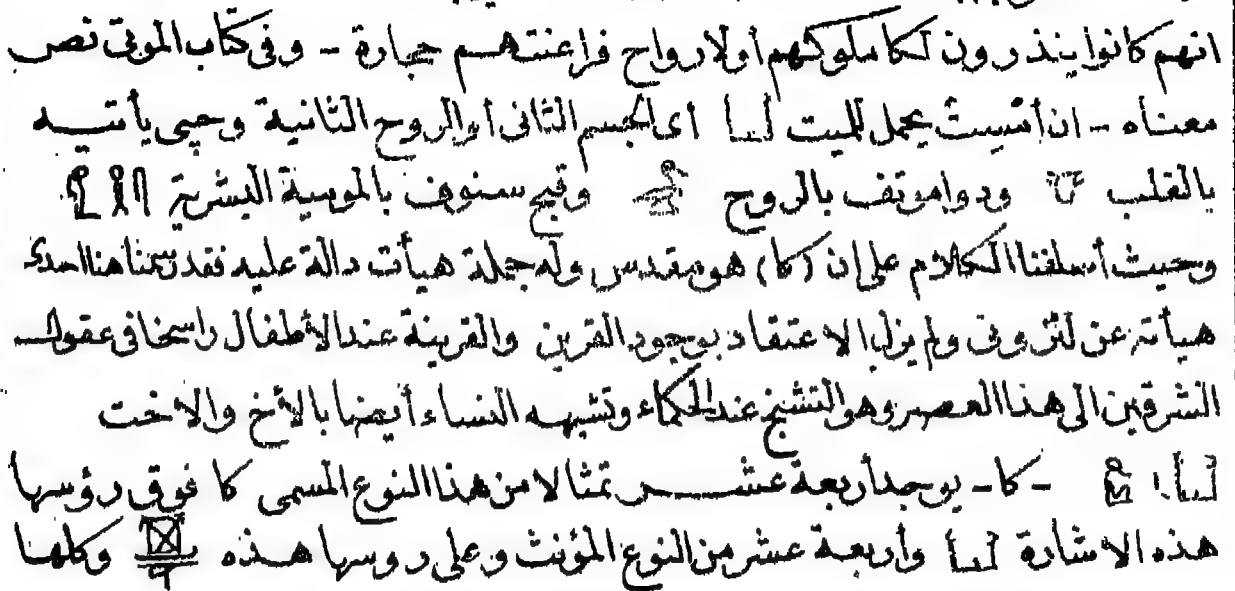 انهم كانوا ينذرون لكا ملوكهم أولارواح فراعنتهم حجارة - وفى كتاب الموتى نصر
معناه - ان أمسيث يحمل للميت 𓂓 أى الجسم الثانى أوالروح الثانية وحپى يأتيه
بالقلب 𓄣 ودواموتف بالروح وقبح سنوف بالموسية البشرية
وحيث أسلفنا الكلام على ان (كا) هو مقدس وله جملة هيأت دالة عليه فقد رسمنا هنا احدى
هيأته عن لنزونى ولم يزل الاعتقاد بوجود القرين والقرينة عند الأطفال راسخا فى عقول
الشرقين الى هذا العصر وهو التشنج عند الحكماء وتشبهه النساء أيضا بالأخ والاخت
𓂓 - كا - يوجد أربعة عشر تمثالا من هذا النوع المسمى كا فوق رؤسها
هذه الاشارة 𓂓 وأربعة عشر من النوع المؤنث وعلى روسها هذه وكلها